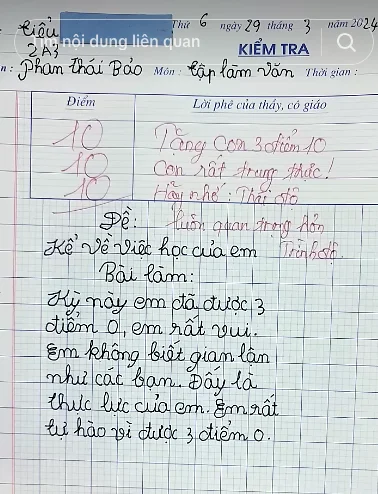 Thứ 6 ngày 29 tháng 3 năm 2024
tiểu
Tìm nội dung liên quan
2A3
KIỂM TRA
Phan Thái Bảo Môn: tập làm văn Thời gian:
Điểm
Lời phê của thầy, cô giáo
10
10
10
Tặng con 3 điểm 10
Con rất trung thực!
Hãy nhớ: Thái độ
luôn quan trọng hơn
Trình độ.
Đề:
Kể về việc học của em
Bài làm:
Kỳ này em đã được 3
điểm 0, em rất vui.
Em không biết gian lận
như các bạn. Đây là
thực lực của em. Em rất
tự hào vì được 3 điểm 0.